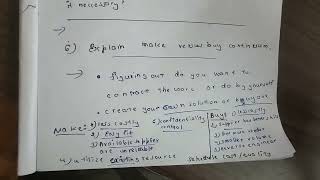 it necessary?
6) Explain make versus buy continuum.
• figuring out do you want to
contract the work or do by yourself
• create your own solution or buy out
Make: 1) less costly 5) confidentiality control
2) easy fit
3) available supplier
are unreliable
4) utilize existing resource
Buy:
1) supplier
3) smaller volume
4) reverse engineer
schedule cost / quality